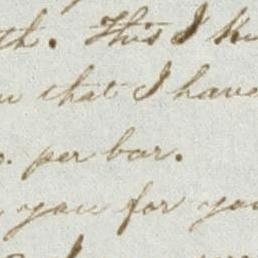 th. This I
that I have
per bar.
you for you